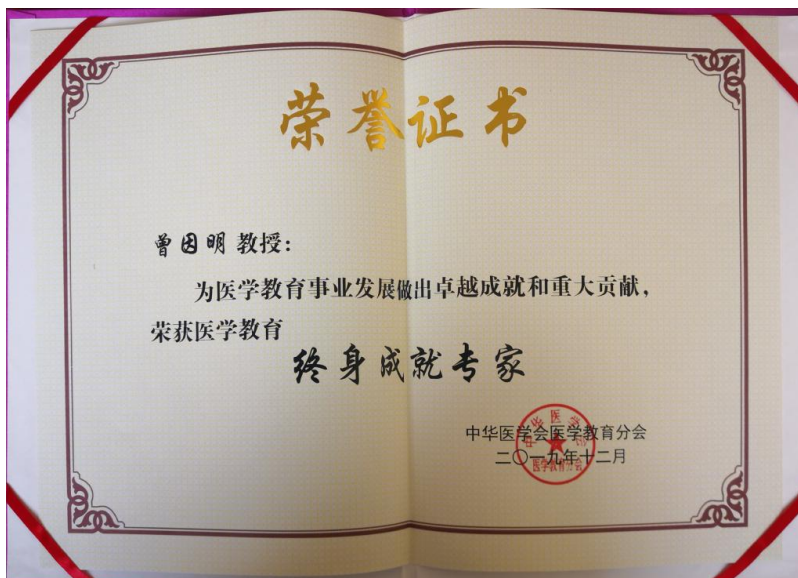 荣誉证书
曾因明 教授：
为医学教育事业发展做出卓越成就和重大贡献，
荣获医学教育
终身成就专家
中华医学会医学教育分会
二〇一九年十二月
中华医学会
医学教育分会